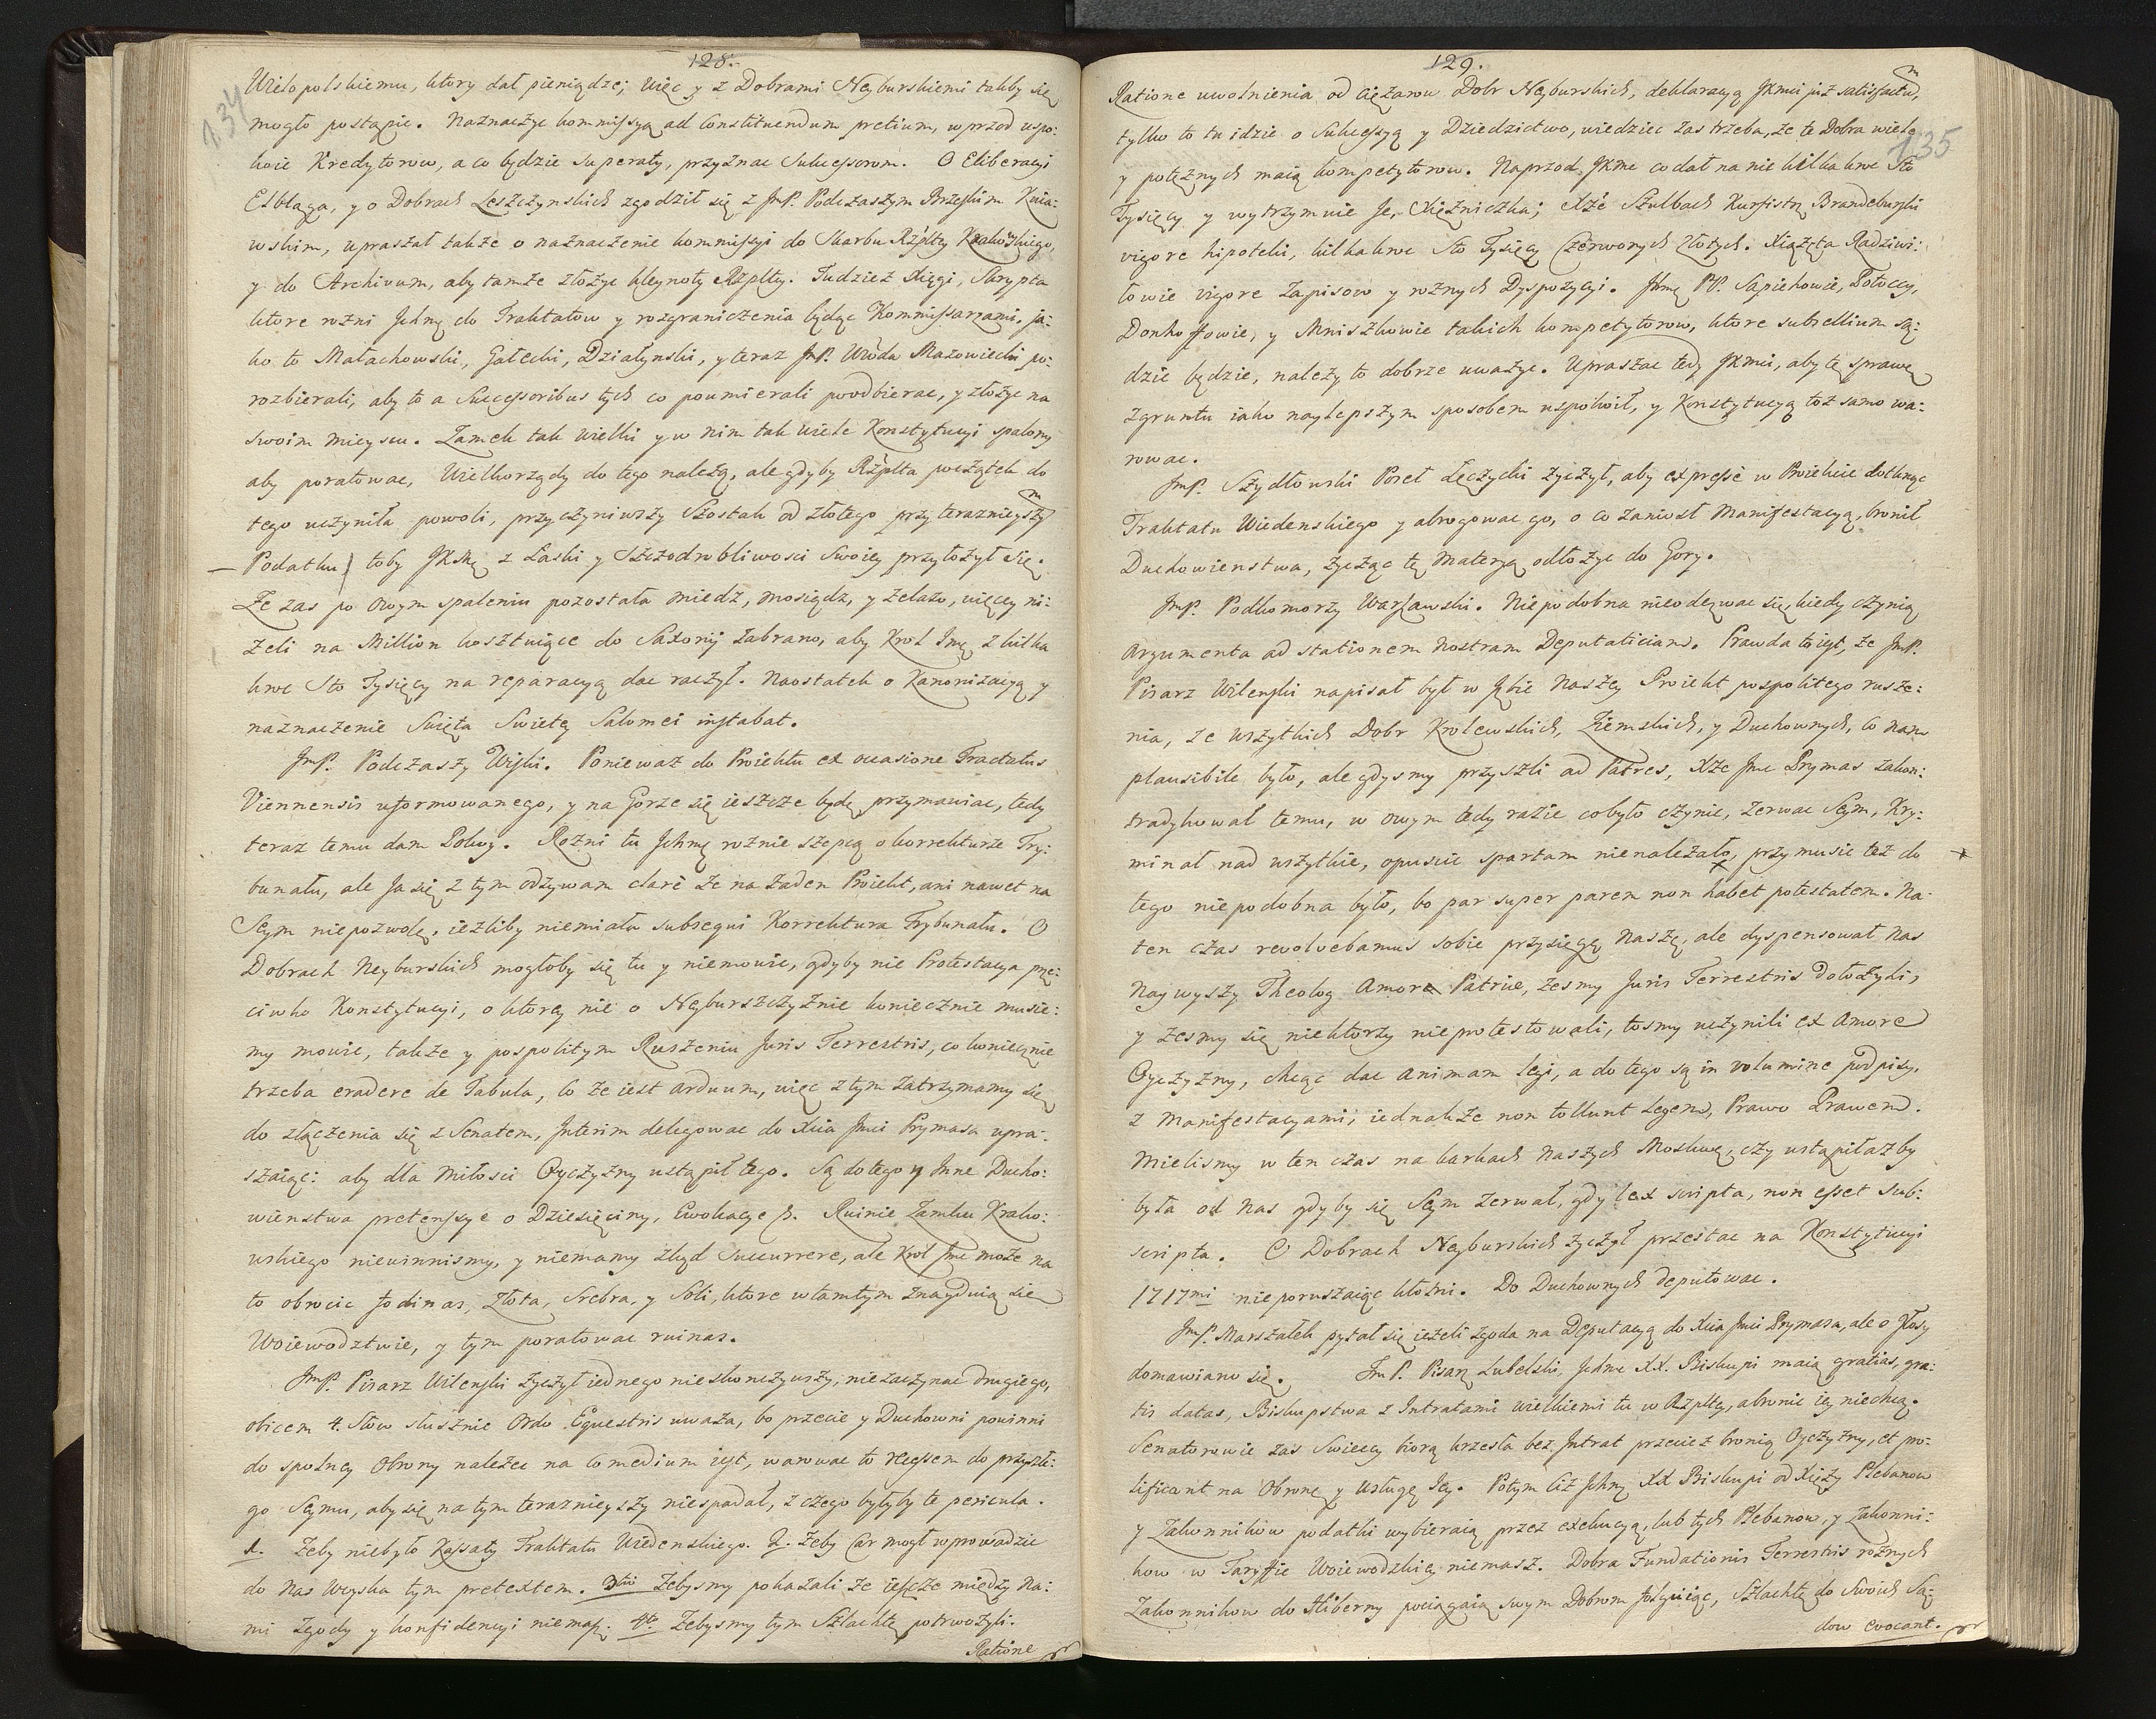 128.
134
Wielopolskiemu, ktory dał pieniądze; więc y z Dobrami Neyburskiemi takby się
mogło postąpic. Naznaczyc kommissyą ad Constituendum pretium, wprzod uspo:
koic Kredytorow, a co będzie superaty, przyznac Sukcessorom. O Eliberacyi
Elbląga, y o Dobrach Leszczynskich zgodził się z JmP. Podczaszym Brzeskim Kuia:
wskim, upraszał także o naznaczenie kommissyi do Skarbu Rzpltey Krakowskiego,
y do Archivum, aby tamże złożyc kleynoty Rzpltey. Tudziesz Xięgi, Skrypta
ktore rożni Ichmę do Traktatow y rozgraniczenia będąc Kommissarzami, ja:
ko to Małachowski, Gałecki, Działynski, y teraz JmP. Wrda Mazowiecki po:
rozbierali, aby to a Successoribus tych co poumierali poodbierac, y złożyc na
swoim mieyscu. Zamek tak wielki y w nim tak wiele Konstytucyi spalony
aby poratowac, Wielkorządy do tego należą, ale gdyby Rzplta początek do
tego uczyniła powoli, przyczyniwszy Szostak od złotego przy teraznieyszym
– Podatku) toby JKMę z Łaski y Szczodrobliwosci Swoiey przyłożył się.
Ze zas po owym spaleniu pozostała miedz, mosiądz, y żelazo, więcey ni:
żeli na Million kosztuiące do Saxonij zabrano, aby Krol Jmę z kilka
kroc Sto Tysięcy na reparacyą dac raczył. Naostatek o Kanonizacyą y
naznaczenie Swięta Swietey Salomei instabat.
JmP. Podczaszy Wiski. Poniewaz do Proiektu ex occasione Tractatus
Viennensis uformowanego, y na Gorze się ieszcze będę przymawiac, tedy
teraz temu dam Pokoy. Rożni tu Jchmę rożnie szepcą o korrekturze Try:
bunału, ale Ja się z tym odzywam clarè że na żaden Proiekt, ani nawet na
Seym niepozwolę, ieżliby niemiała subsequi Korrektura Trybunału. O
Dobrach Neyburskich mogłoby się tu y niemowic, gdyby nie Protestacya prze:
ciwko Konstytucyi, o ktorey nie o Neyburszczyznie koniecznie musie:
my mowic, także y pospolitym Ruszeniu Juris Terrestris, co koniecznie
trzeba eradere de Tabula, Co że iest arduum, więc z tym zatrzymamy się
do złączenia się z Senatem, Interim delegowac do Xcia Jmci Prymasa upra:
szaiąc: aby dla miłosci Oyczyzny ustąpił tego. Są do tego y Inne Ducho:
wienstwa pretensye o Dziesięciny, Ewokacye &. Ruinie Zamku Krako:
wskiego niewinnismy, y niemamy zkąd Succurrere, ale Krol Jmc może na
to obrocic fodinas, Złota, Srebra, y Soli, ktore w tamtym znayduią się
Woiewodztwie, y tym poratowac ruinas.
JmP. Pisarz Wilenski życzył iednego nieskonczywszy, niezaczynac drugiego,
obicem 4. Słow słusznie Ordo Equestris uważa, bo przecie y Duchowni powinni
do spolney Obrony należec na Co medium iest, warowac to recessem do przyszłe:
go Seymu, aby się na tym teraznieyszy niespadał, z czego byłyby te pericula.
1. Zeby niebyło Kassaty Traktatu Wiedenskiego. 2. Zeby Car mogł wprowadzic
do nas Woyska tym pretextem. 3tio Zebysmy pokazali że ieszcze między na:
mi Zgody y konfidencyi niemasz. 4to Zebysmy tym Szlachtę potrwożyli.
Ratione
129.
135
Ratione uwolnienia od Ciężarow Dobr Neyburskich, deklaracyą JKmci już satisfactum,
tylko to tu idzie o Sukcessyą y Dziedzictwo, wiedziec zas trzeba, że te Dobra wiele
y potężnych maią kompetytorow. Naprzod JKMc co dał na nie kilka kroc Sto
Tysięcy y wytrzymuie Je, Xiężniczka; Xżę Szulbach Kurfistrz Brandeburski
vigore hipoteki, kilka kroc Sto Tysięcy Czerwonych Złotych. Xiążęta Radziwi:
łowie vigore Zapisow y rożnych Dyspozycyi. Jchmę PP. Sapiehowie, Potoccy,
Donhoffowie, y Mniszkowie takich kompetytorow, ktore subsellium są:
dzic będzie, należy to dobrze uważyc. Upraszac tedy JKmci, aby tę sprawę
zgruntu iako naylepszym sposobem uspokoił, y Konstytucyą toż samo wa:
rowac.
JmP. Szydłowski Poseł Łęczycki życzył, aby expresse w Proiekcie dotknąc
Traktatu Wiedenskiego y abrogowac go, o co zaniosł Manifestacyą, bronił
Duchowienstwa, życząc tę materyą odłożyc do Gory.
JmP. Podkomorzy Warszawski. Niepodobna nieodezwac się, kiedy czynią
argumenta ad stationem nostram Deputaticiam. Prawda to iest, że JmP.
Pisarz Wilenski napisał był w Izbie Naszey Proiekt pospolitego rusze:
nia, ze wszytkich Dobr Krolewskich, Ziemskich, y Duchownych, Co nam
plausibile było, ale gdysmy przyszli ad Patres, Xże Jmc Prymas zakon:
tradykował temu, w owym tedy razie co było czynic, zerwac Seym, Kry:
minał nad wszytkie, opuscic spartam nienależało, przymusic też do
tego niepodobna było, bo par super parem non habet potestatem. Na
ten czas revolvebamus sobie przysięgę naszę, ale dyspensował nas
Naywyszy Theolog Amor Patriæ, żesmy Juris Terrestris dołożyli,
y żesmy się niektorzy nieprotestowali, tosmy uczynili ex Amore
Oyczyzny, chcąc dac animam legi, a do tego są in volumine podpisy,
z Manifestacyami, iednakże non tollunt Legem, Prawo Prawem.
Mielismy w ten czas na karkach naszych Moskwę, czy ustąpiłażby
była od nas gdyby się Seym zerwał, gdy lex scripta, non esset sub:
scripta. O Dobrach Neyburskich życzył przestac na Konstytucyi
1717mi nieporuszaiąc kłotni. Do Duchownych deputowac.
JmP. Marszałek pytał się ieżeli zgoda na Deputacyą do Xcia Jmci Prymasa, ale o głosy
domawiano się. JmP. Pisarz Lubelski, Jchmc XX. Biskupi maią gratias, gra:
tis datas, Biskupstwa z Intratami wielkiemi tu w Rzpltey, a bronic iey niechcą.
Senatorowie zas Swieccy biorą krzesła bez Intrat przeciez bronią Oyczyzny, et pro:
lificant na Obronę y Usługę Iey. Potym Ciż Jchmę XX Biskupi od Xięży Plebanow
y Zakonnikow podatki wybieraią przez exekucyą, lub tych Plebanow, y Zakonni:
kow w Taryffie Woiewodzkiey niemasz. Dobra Fundationis Terrestris rożnych
Zakonnikow do Hiberny pociągaią swym Dobrom folguiąc, Szlachtę do Swoich Są:
dow evocant.